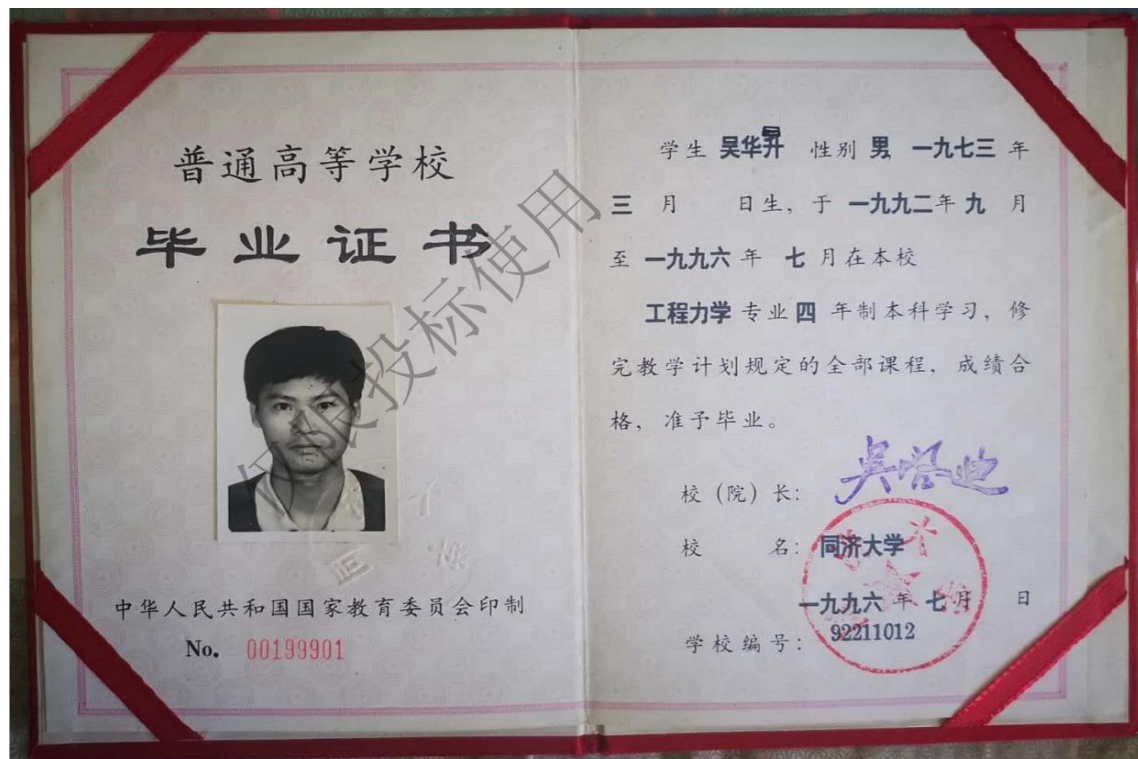 普通高等学校
毕业证书
中华人民共和国国家教育委员会印制
No. 00199901
学生 吴华昇 性别 男, 一九七三 年
三 月 日生, 于 一九九二年 九 月
至 一九九六 年 七 月在本校
工程力学 专业 四 年制本科学习, 修
完教学计划规定的全部课程, 成绩合
格, 准予毕业。
校(院)长: 吴启迪
校 名: 同济大学
一九九六 年 七月 日
学校编号: 92211012
仅限投标使用